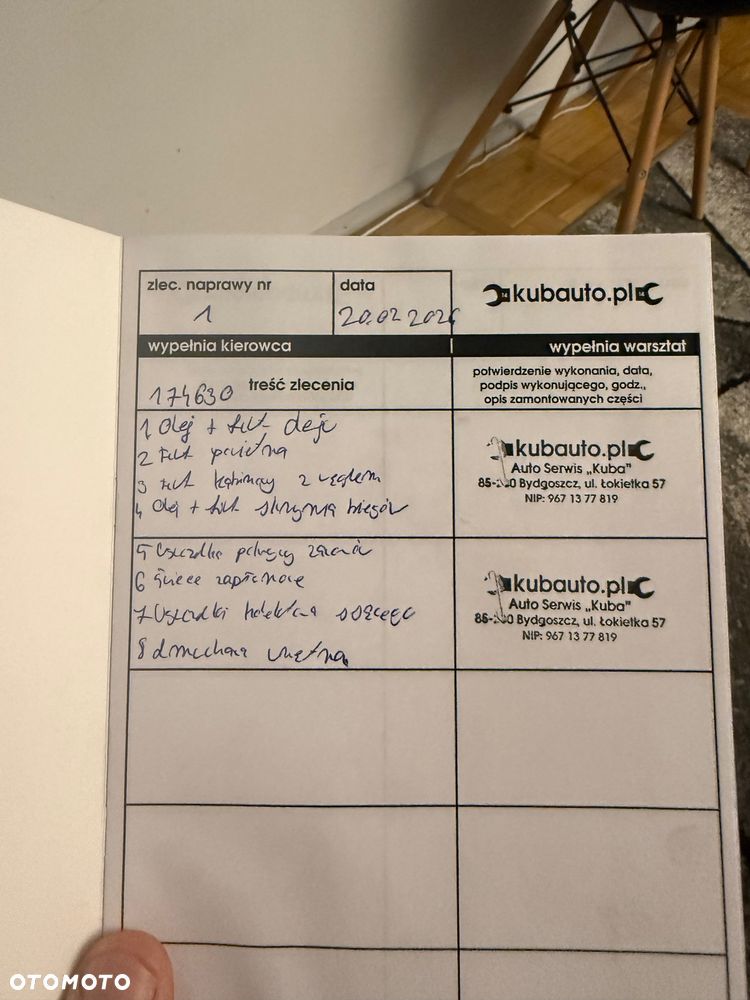 zlec. naprawy nr
data
kubauto.pl
1
20.02.2026
wypełnia kierowca
wypełnia warsztat
174630
treść zlecenia
potwierdzenie wykonania, data,
podpis wykonującego, godz.,
opis zamontowanych części
1 Olej + filt oleju
2 Filt powietrza
3 filt kabinowy z węglem
4 Olej + filt skrzynia biegów
kubauto.pl
Auto Serwis „Kuba”
Bydgoszcz, ul. Łokietka 57
NIP: 967 13 77 819
5 Uszczelka pokrywy zaworów
6 Świece zapłonowe
7 Uszczelki kolektora ssącego
8 dmuchawa wnętrza
kubauto.pl
Auto Serwis „Kuba”
Bydgoszcz, ul. Łokietka 57
NIP: 967 13 77 819
OTOMOTO